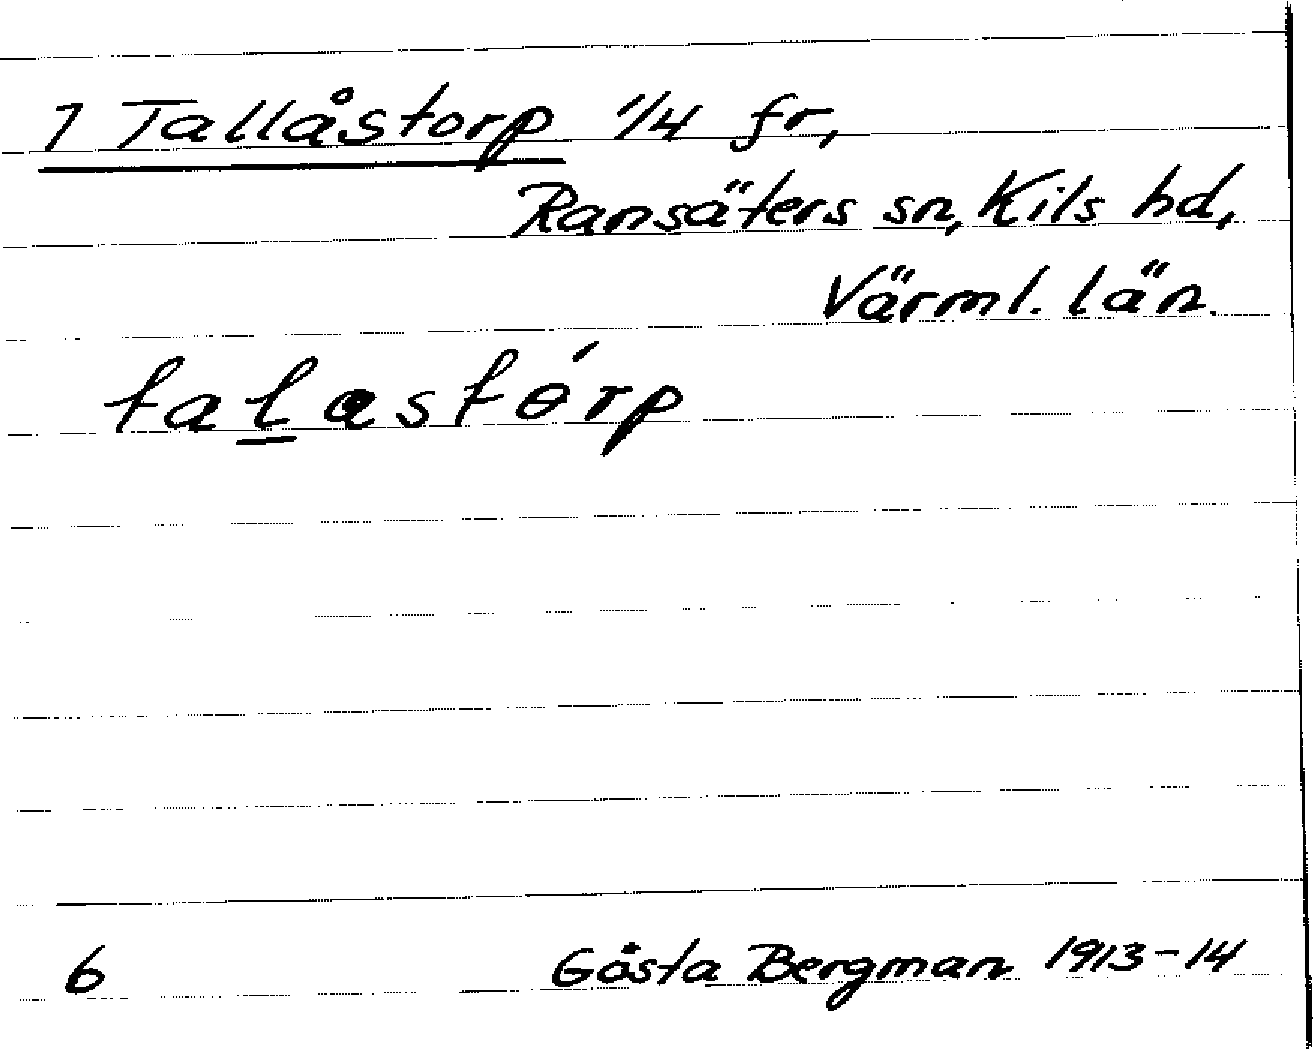 1 Tallåstorp 1/4 fr,
Ransäters sn, Kils hd,
Värml. län.
talastórp
6 Gösta Bergman 1913-14